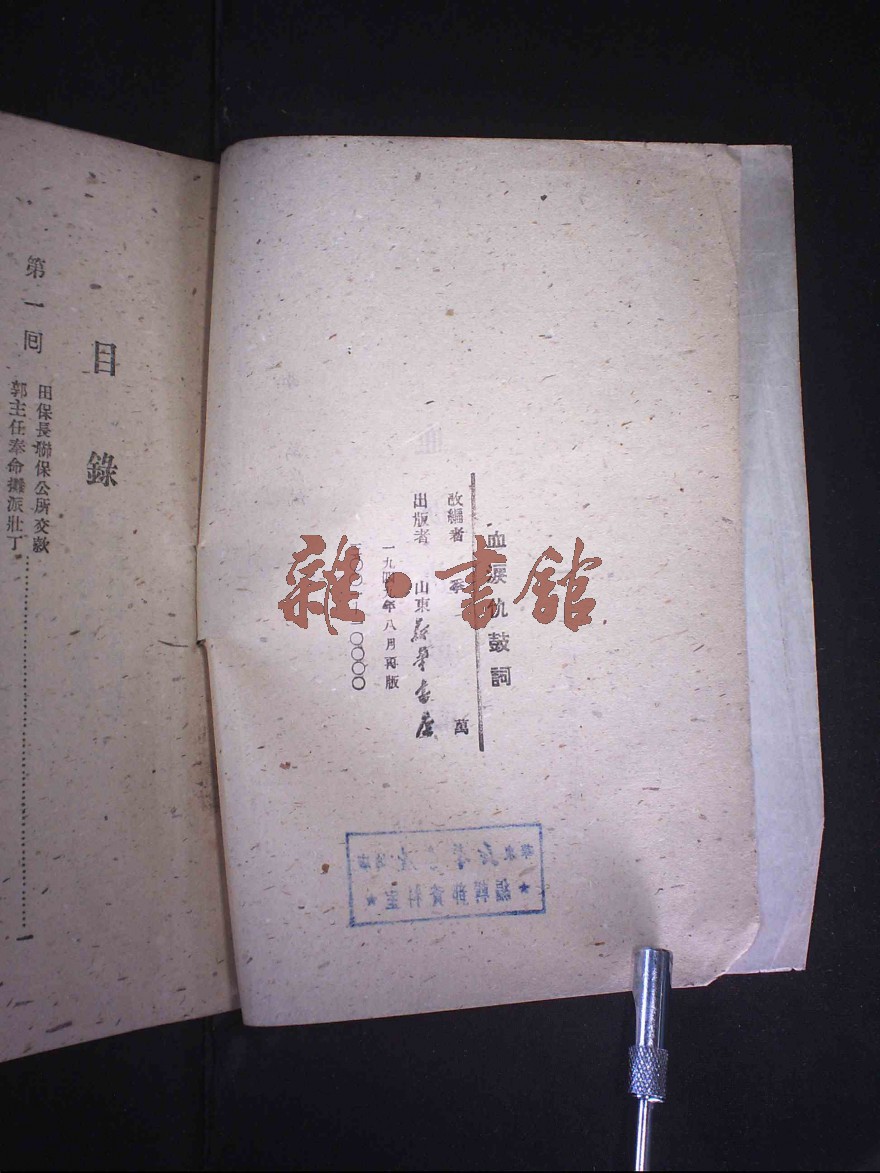 血淚仇鼓詞
改編者 季 萬
出版者 山東新華書店
一九四九年八月再版
目錄
第一回
田保長聯保公所交款
郭主任奉命攤派壯丁
一
雜·書館
編輯部資料室